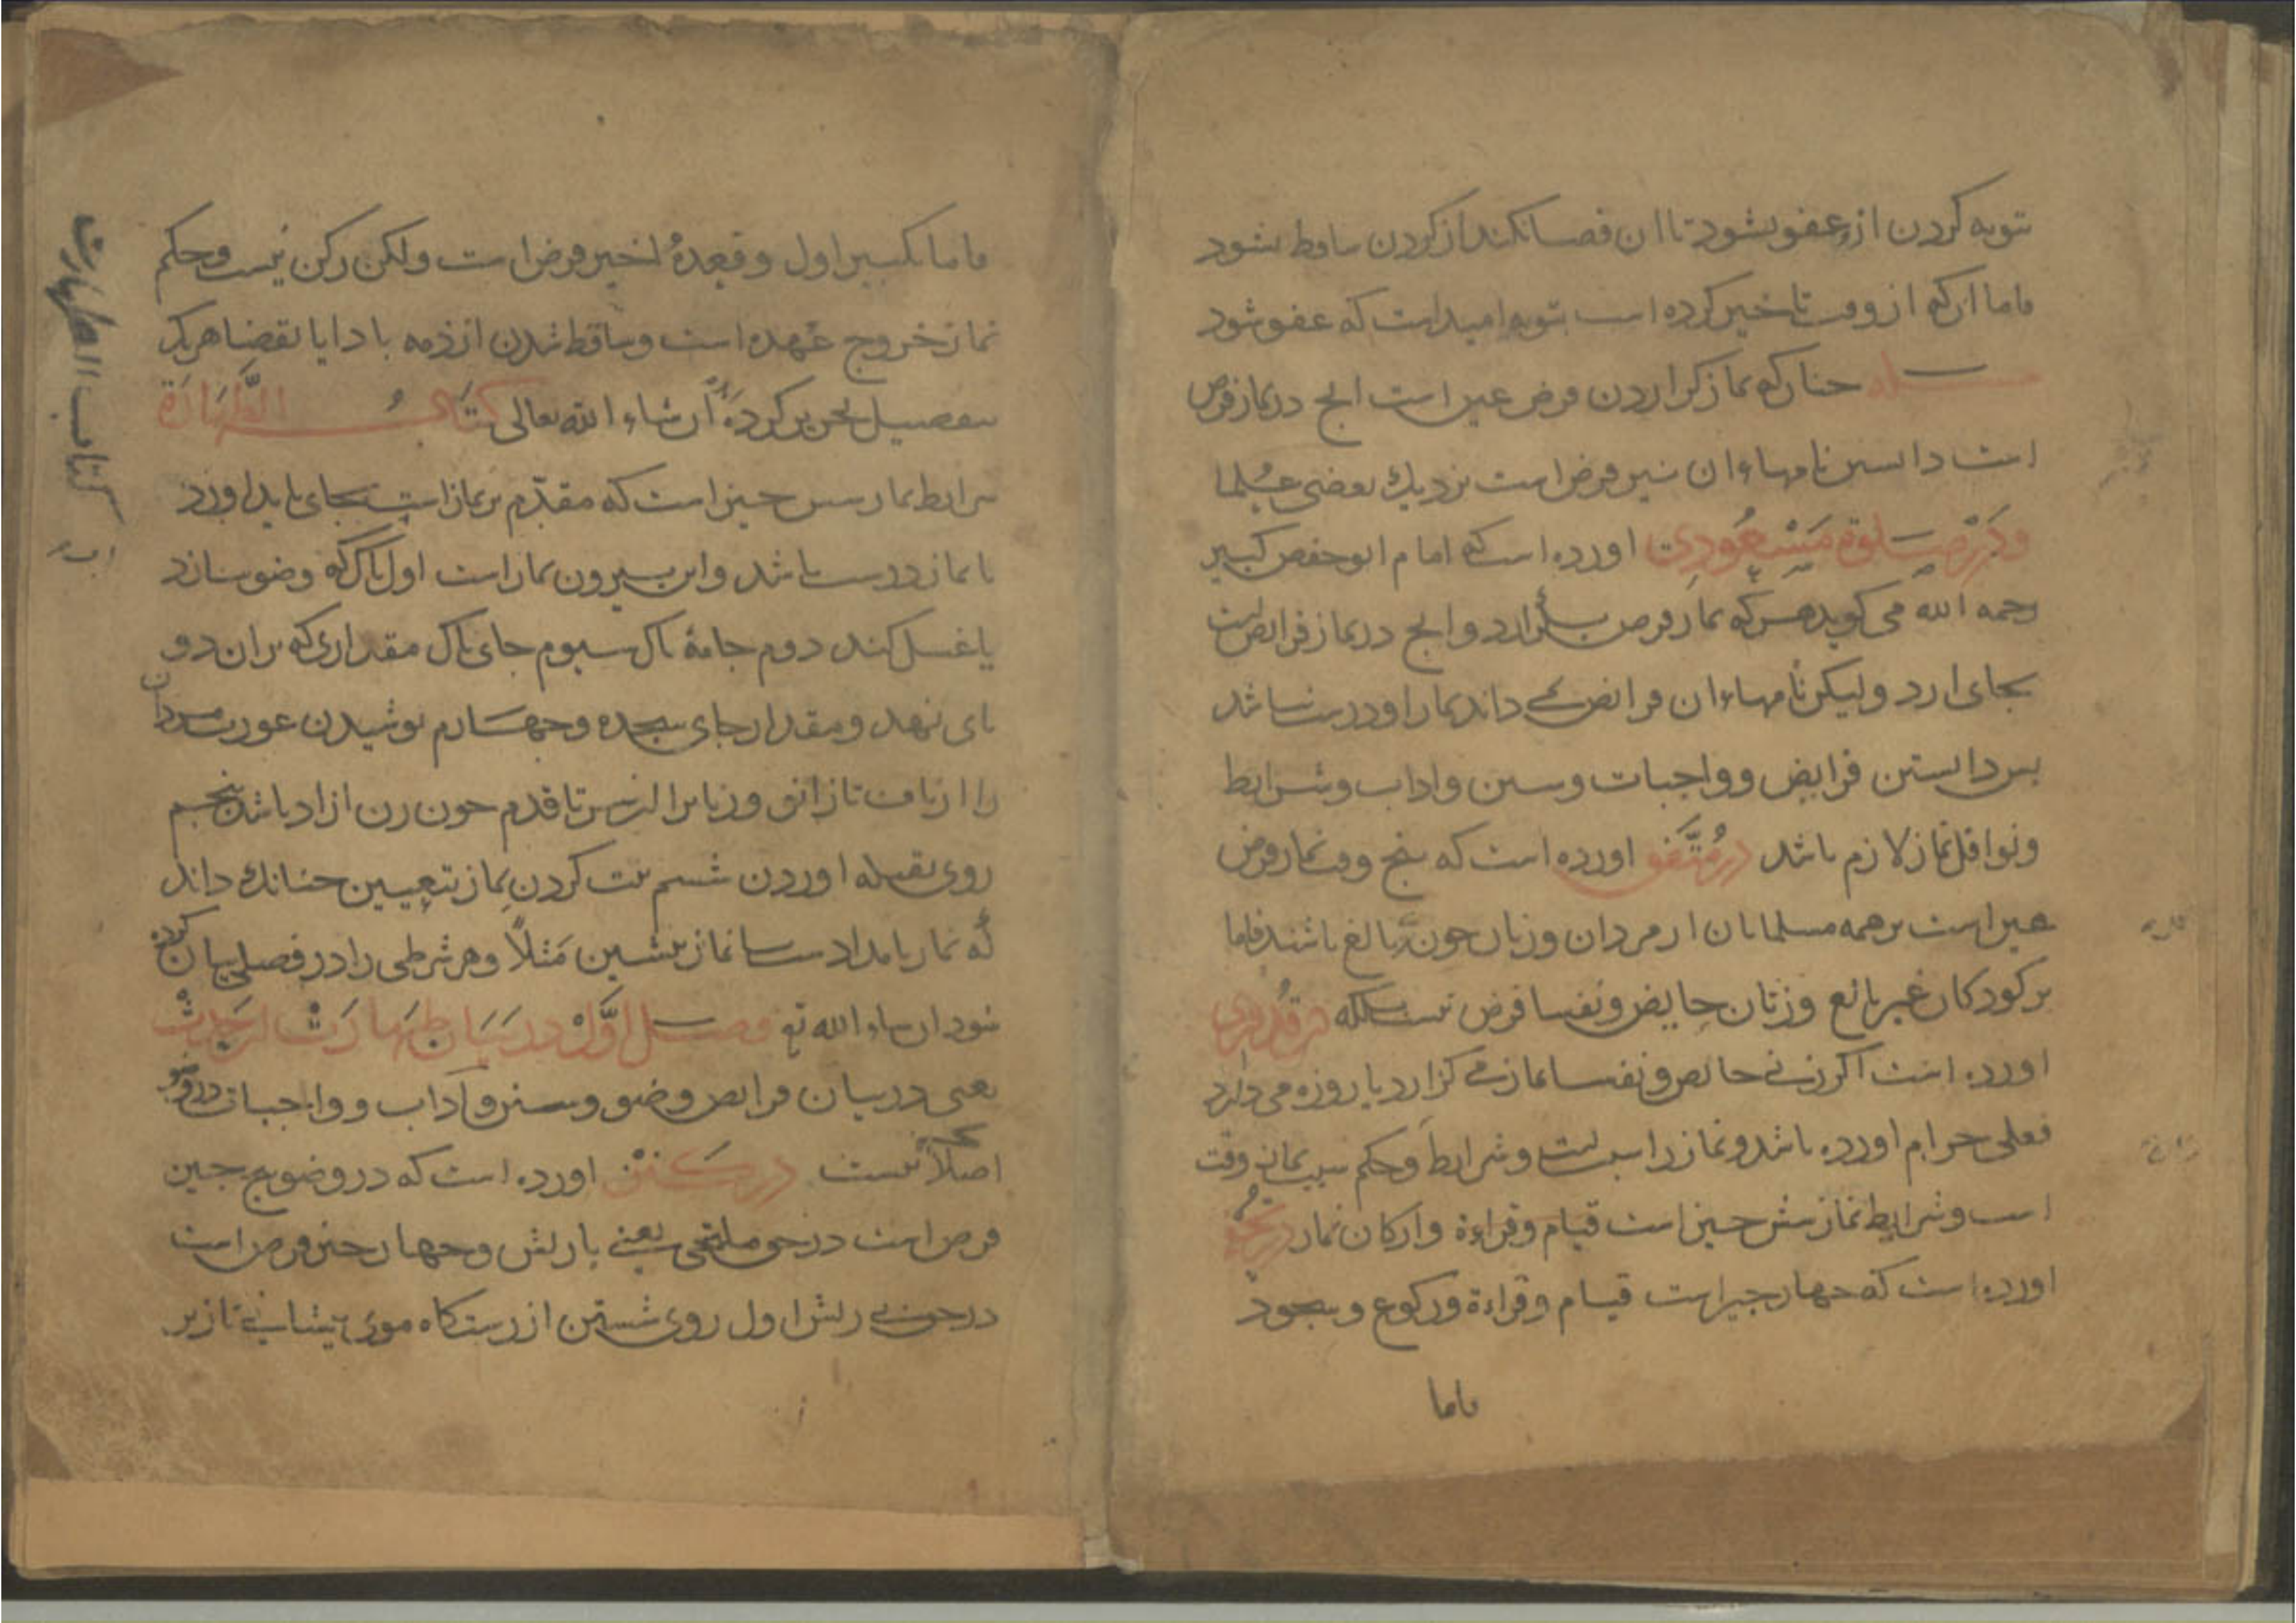 توبه کردن ازو عفو نشود تا ان قضا نکند از کردن ساقط نشود
فاما انکه از وقت تاخیر کرده است بتوبه امیدست که عفو شود
مسئله جنانکه نماز کزاردن فرض عین است انج در نماز فرض
است دانستن نامهاء ان نیز فرض است نزدیك بعضی علما
و در صلوة مسعودی اورده است که امام ابو حفص کبیر
رحمه الله می کوید هرکه نماز فرض بکزارد و انج در نماز فرایض است
بجای ارد ولیکن نامهاء ان فرایض نمی داند نماز او درست نباشد
بس دانستن فرایض و واجبات و سنن و اداب و شرایط
و نوافل نماز لازم باشد در متفق اورده است که بنج وقت نماز فرض
عین است بر همه مسلمانان از مردان و زنان جون بالغ باشند فاما
بر کودکان غیر بالغ و زنان حایض و نفسا فرض نیست بلکه
اورده است اکر زنی حایض و نفسا نماز می کزارد یا روزه می دارد
فعلی حرام اورده باشد و نماز را سبب است و شرایط و حکم سبب نماز وقت
است و شرایط نماز شش جیز است قیام و قراءة و ارکان نماز
اورده است که جهار جیز است قیام و قراءة و رکوع و سجود
فاما
فاما تکبیر اول و قعدهٔ اخیر فرض است ولکن رکن نیست و حکم
نماز خروج عهده است و ساقط شدن از ذمه با دا یا بقضا هر یک
بتفصیل ان شاء الله تعالی کتاب الطهارة
شرایط نماز شش جیز است که مقدم بر نماز است بجای باید اورد
تا نماز درست باشد و این بیرون نماز است اول باک که وضو سازد
یا غسل کند دوم جامهٔ باک سیوم جای باک مقداری که بران دو
بای نهد و مقدار جای سجده و جهارم بوشیدن عورت مردان
را از ناف تا زانو و زنانرا از سر تا قدم جون زن ازاد باشد بنجم
روی بقبله اوردن ششم نیت کردن نماز بتعیین جنانك داند
که نماز بامدادست یا نماز بیشین مثلاً و هر شرطی را در فصلی بیان کرده
شود ان شاء الله تع فصل اوّل در بیان طهارت از حدث
یعنی در بیان فرایض وضو و سنن و آداب و واجبات در وضو
اصلاً نیست در کنز اورده است که در وضو بنج جیز
فرض است در حق ملتحی یعنی با ریش و جهار جیز فرض است
در حق بی ریش اول روی شستن از رستکاه موی بیشانی تا زیر
کتاب الطهارت